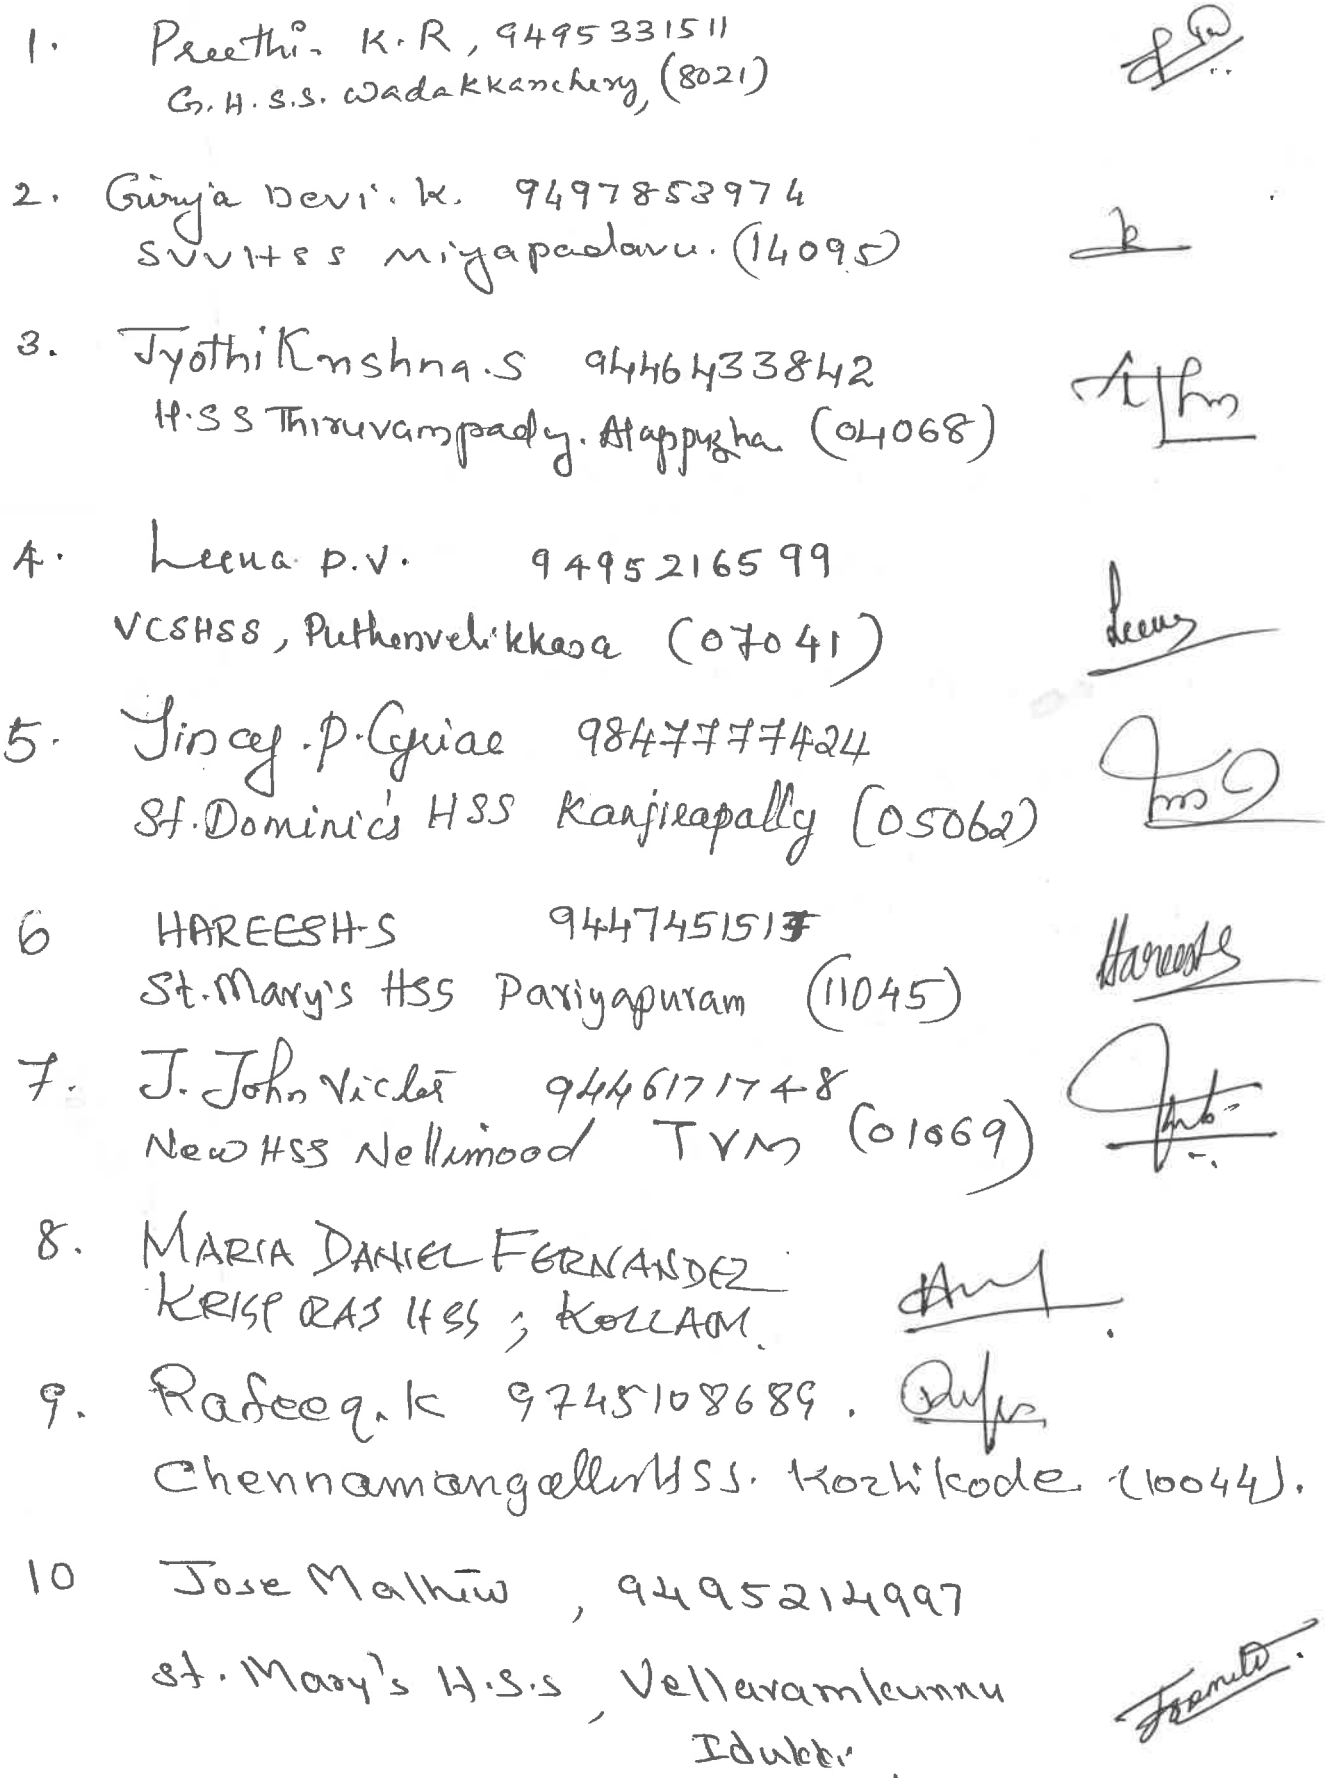 1. Preethi. K.R, 9495331511
G.H.S.S. Wadakkanchery, (8021)
2. Girija Devi. K. 9497853974
SVVHSS Miyapadavu. (14095)
3. Jyothi Krishna.S 9446433842
H.S S Thiruvampady. Alappuzha (04068)
4. Leena P.V. 9495216599
VCSHSS, Puthenvelikkara (07041)
5. Jincy.P.Cyriac 9847777424
St.Dominic's HSS Kanjirapally (05062)
6 HAREESH.S 9447451517
St.Mary's HSS Pariyapuram (11045)
7. J. John Victor 9446171748
New HSS Nellimood TVM (01069)
8. MARIA DANIEL FERNANDEZ
KRIST RAJ HSS, KOLLAM.
9. Rafeeq.K 9745108689.
Chennamangallur HSS. Kozhikode (10044).
10 Jose Mathew, 9495214997
St. Mary's H.S.S, Vellaramkunnu
Idukki.